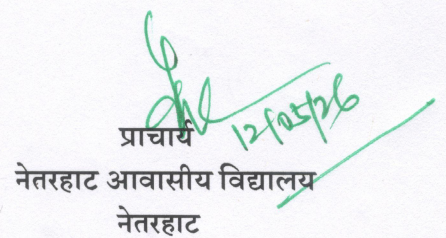 12/05/26
प्राचार्य
नेतरहाट आवासीय विद्यालय
नेतरहाट